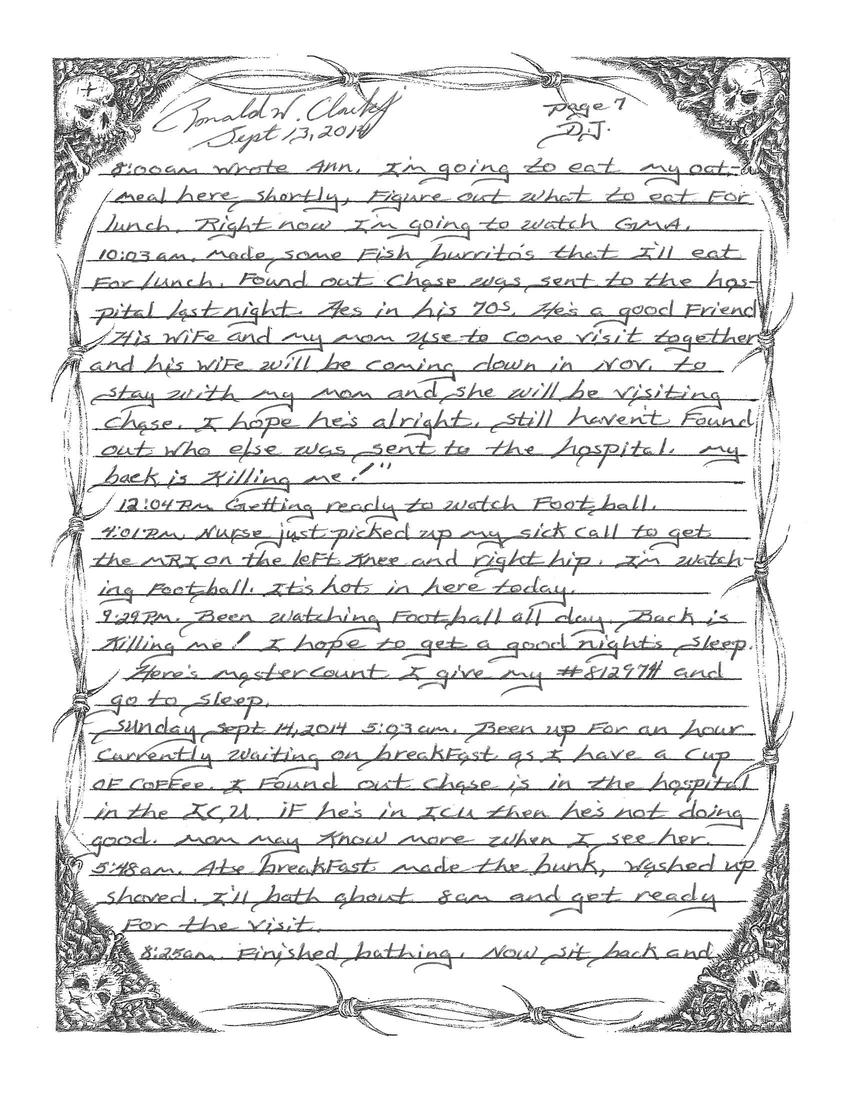 Ronald W. Clark Jr
page 7
Sept 13, 2014
D.J.
8:00am wrote Ann. I'm going to eat my oat-
meal here shortly, Figure out what to eat For
lunch. Right now I'm going to watch GMA.
10:03am. made some Fish burrito's that I'll eat
For lunch. Found out Chase was sent to the hos-
pital last night. Hes in his 70s. He's a good Friend
His wiFe and my mom use to come visit together
and his wiFe will be coming down in Nov. to
stay with my mom and she will be visiting
Chase. I hope he's alright. Still haven't Found
out who else was sent to the hospital. my
back is Killing me!"
12:04PM Getting ready to watch Football.
4:01PM. Nurse just picked up my sick call to get
the MRI on the leFt Knee and right hip. I'm watch-
ing Football. It's hot in here today.
9:29PM. Been watching Football all day. Back is
Killing me! I hope to get a good night's sleep.
Here's mastercount I give my #812974 and
go to sleep.
Sunday Sept 14, 2014 5:03am. Been up For an hour
Currently waiting on breakFast as I have a Cup
OF CoFFee. I Found out Chase is in the hospital
in the I.C.U. iF he's in ICU then he's not doing
good. Mom may Know more when I see her.
5:48am. Ate breakFast made the bunk, washed up
shaved. I'll bath about 8am and get ready
For the visit.
8:25am. Finished bathing. Now sit back and